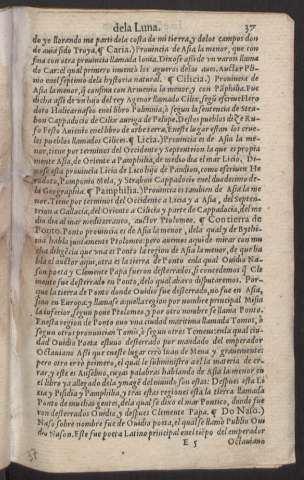 dela Luna. 37
do yo llorando me parti dela costa de mi tierra, y delos campos don
de auia sido Troya. ¶ Caria.) Prouincia de Asia la menor, que con
fina con otra prouincia llamada Ionia. Dixose assi de vn varon llama
do Car: el qual primero inuentò los agueros delas aues. Auctor Pli-
nio enel septimo dela hystoria natural. ¶ Cilicia.) Prouincia de
Asia la menor, q̃ confina con Armenia la menor, y con Pãphilia. Fue
dicha assi de vn hijo del rey Agenor llamado Cilix, segũ escriue Hero
doto Halicarnaseo enel libro Polimnia, ò segun la sentencia de Stra-
bon Cappadocio de Cilix auriga de Pelope. Destos pueblos dize Ru-
fo Festo Auieno enel libro de orbe terrae. Eneste lugar estan los crue-
les pueblos llamados Cilices. ¶ Licia.) Prouincia es de Asia la me-
nor, tiene por terminos del Occidente y Septentrion la que es propria
mente Asia, de Oriente a Pamphilia, de medio dia el mar Licio. Di-
xose assi prouincia Licia de Licio hijo de Pandion, como escriuen He
rodoto, Pomponio Mela, y Strabon Cappadocio enel duodecimo de-
la Geographia. ¶ Pamphilia.) Prouincia es tambien de Asia la me
nor. Tiene por terminos del Occidente a Licia y a Asia, del Septen-
trion a Gallacia, del Oriente a Cilicia y parte de Cappadocia, del me
dio dia al mar mediterraneo, auctor Ptolomeo. ¶ Con tierra de
Ponto. Ponto prouincia es de Asia la menor, dela qual y de Bythi-
nia habla juntamente Ptolomeo: pero auemos aqui de mirar con mu
cha diligencia que vna es Ponto la region de Asia la menor, de que ha
bla el auctor aqui, otra es la tierra de Ponto enla qual Ouidio Na-
son poeta y Clemente Papa fueron desterrados, si concedemos q̃ Cle
mente fue desterrado en Ponto, delo qual ahora disputaremos. Por-
que la tierra de Ponto donde Ouidio fue desterrado, no fue en Asia,
sino en Europa: y llamase aquella region por nombre principal Mesia
la inferior, segun pone Ptolomeo, y por otro nombre se llama Ponto.
Enesta region de Ponto ouo vna ciudad maritima llamada Tomos, ò
segun otros pronuncian Tomis, ò segun otros Tomeus: enla qual ciu-
dad Ouidio Poeta estuuo desterrado por mandado del emperador
Octauiano Assi que eneste lugar errò Iuan de Mena y grauemente:
pero otro errò primero, el qual le subministro a el la materia de er-
rar, y este es Anselmo, cuyas palabras hablando de Asia la menor en
el libro ya allegado dela ymagẽ del mundo, son estas: Despues esta Li-
cia y Pisidia y Pamphilia, y tras estas regiones esta la tierra llamada
Ponto de muchas gentes, dela qual se dixo el mar Pontico, donde fue
ron desterrados Ouidio, y despues Clemente Papa. ¶ Do Naso.)
Naso sobre nombre fue de Ouidio poeta, el qual se llamò Publio Oui
dio Nason. Este fue poeta Latino principal enel tiẽpo del emperador
E 5 Octauiano